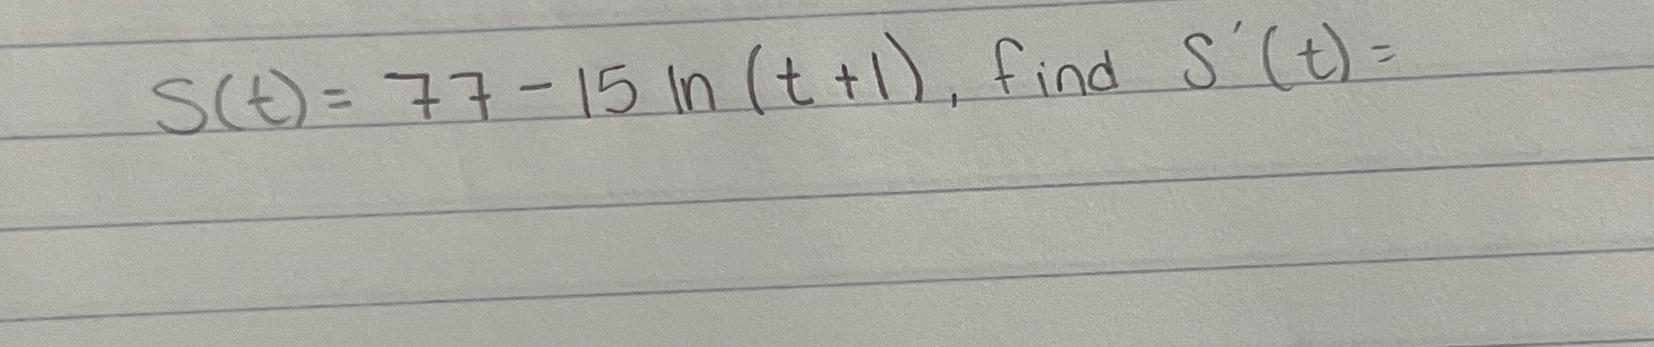 S(t) = 77 - 15 ln (t+1), find S'(t) =